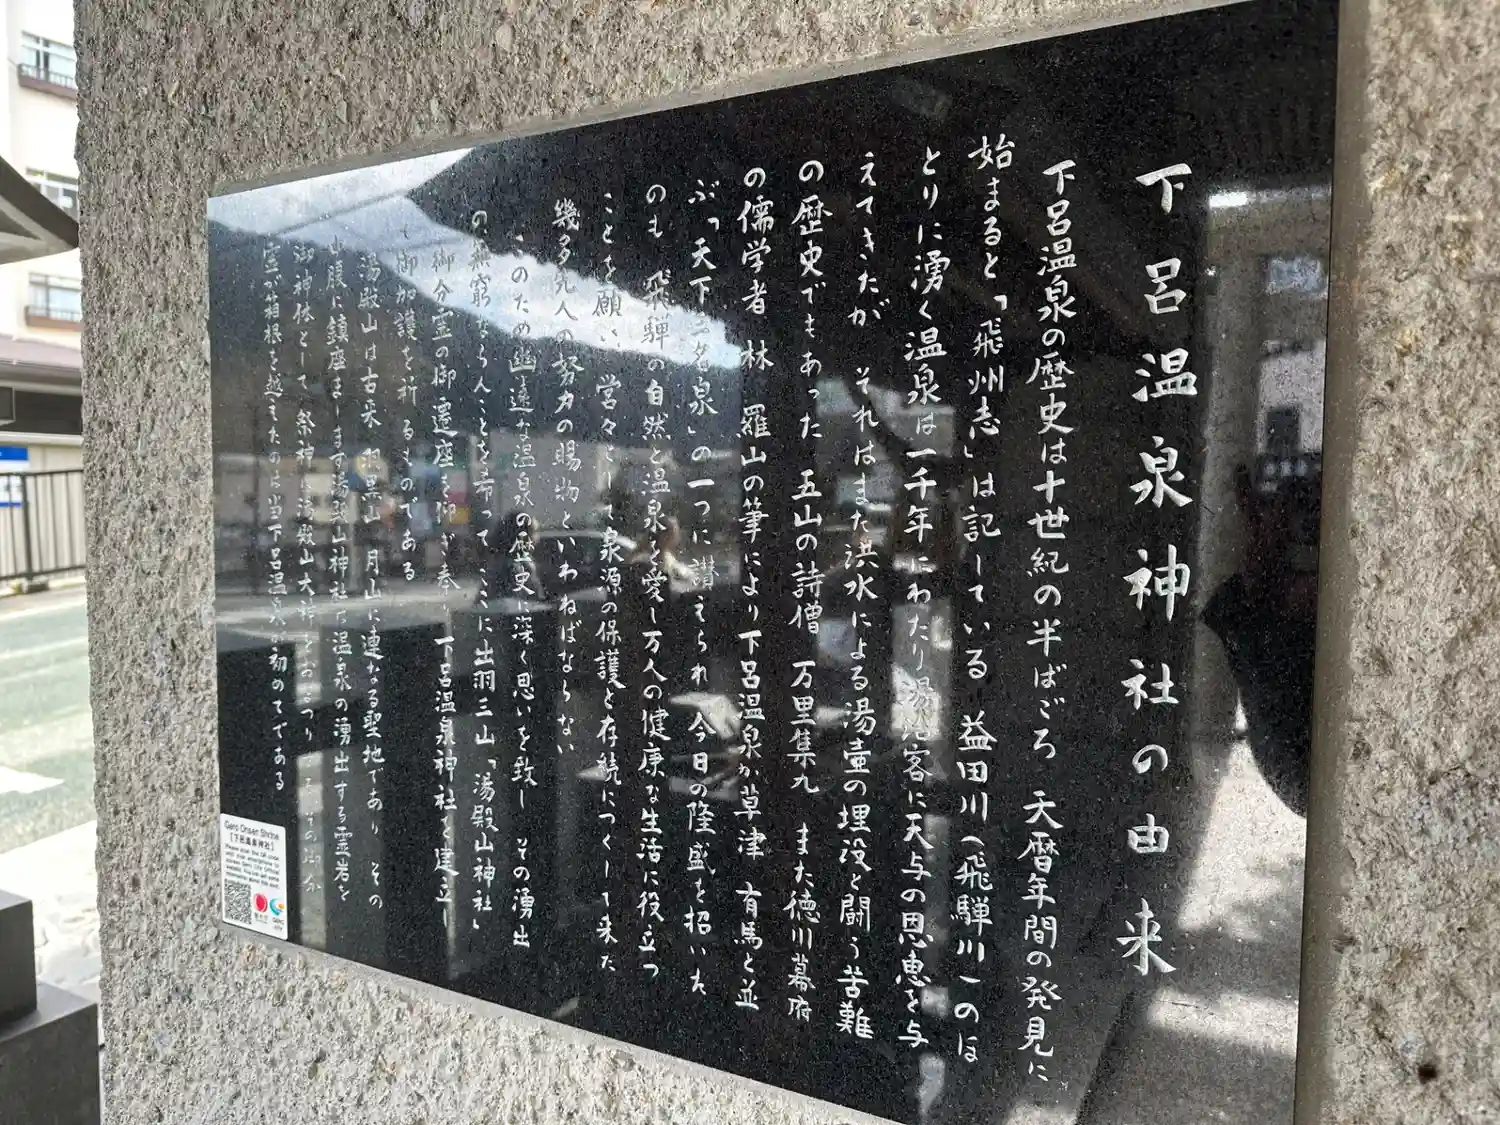 下呂温泉神社の由来
下呂温泉の歴史は十世紀の半ばごろ 天暦年間の発見に
始まると「飛州志」は記している 益田川(飛騨川)のほ
とりに湧く温泉は一千年にわたり湯治客に天与の恩恵を与
えてきたが それはまた洪水による湯壷の埋没と闘う苦難
の歴史でもあった 五山の詩僧 万里集九 また徳川幕府
の儒学者 林 羅山の筆により下呂温泉が草津 有馬と並
ぶ「天下三名泉」の一つに讃えられ 今日の隆盛を招いた
のも 飛騨の自然と温泉を愛し万人の健康な生活に役立つ
ことを願い 営々として泉源の保護と存続につくして来た
幾多先人の努力の賜物といわねばならない
このため幽遠な温泉の歴史に深く思いを致し その湧出
の無窮ならんことを希って ここに出羽三山「湯殿山神社」
御分霊の御遷座を仰ぎ奉り 下呂温泉神社を建立し
御加護を祈るものである
湯殿山は古来 羽黒山 月山に連なる聖地であり その
山腹に鎮座まします湯殿山神社は温泉の湧出する霊岩を
御神体として 祭神 湯殿山大神をおまつり その御分
霊が箱根を越えたのは当下呂温泉が初めてである
Gero Onsen Shrine
【下呂温泉神社】